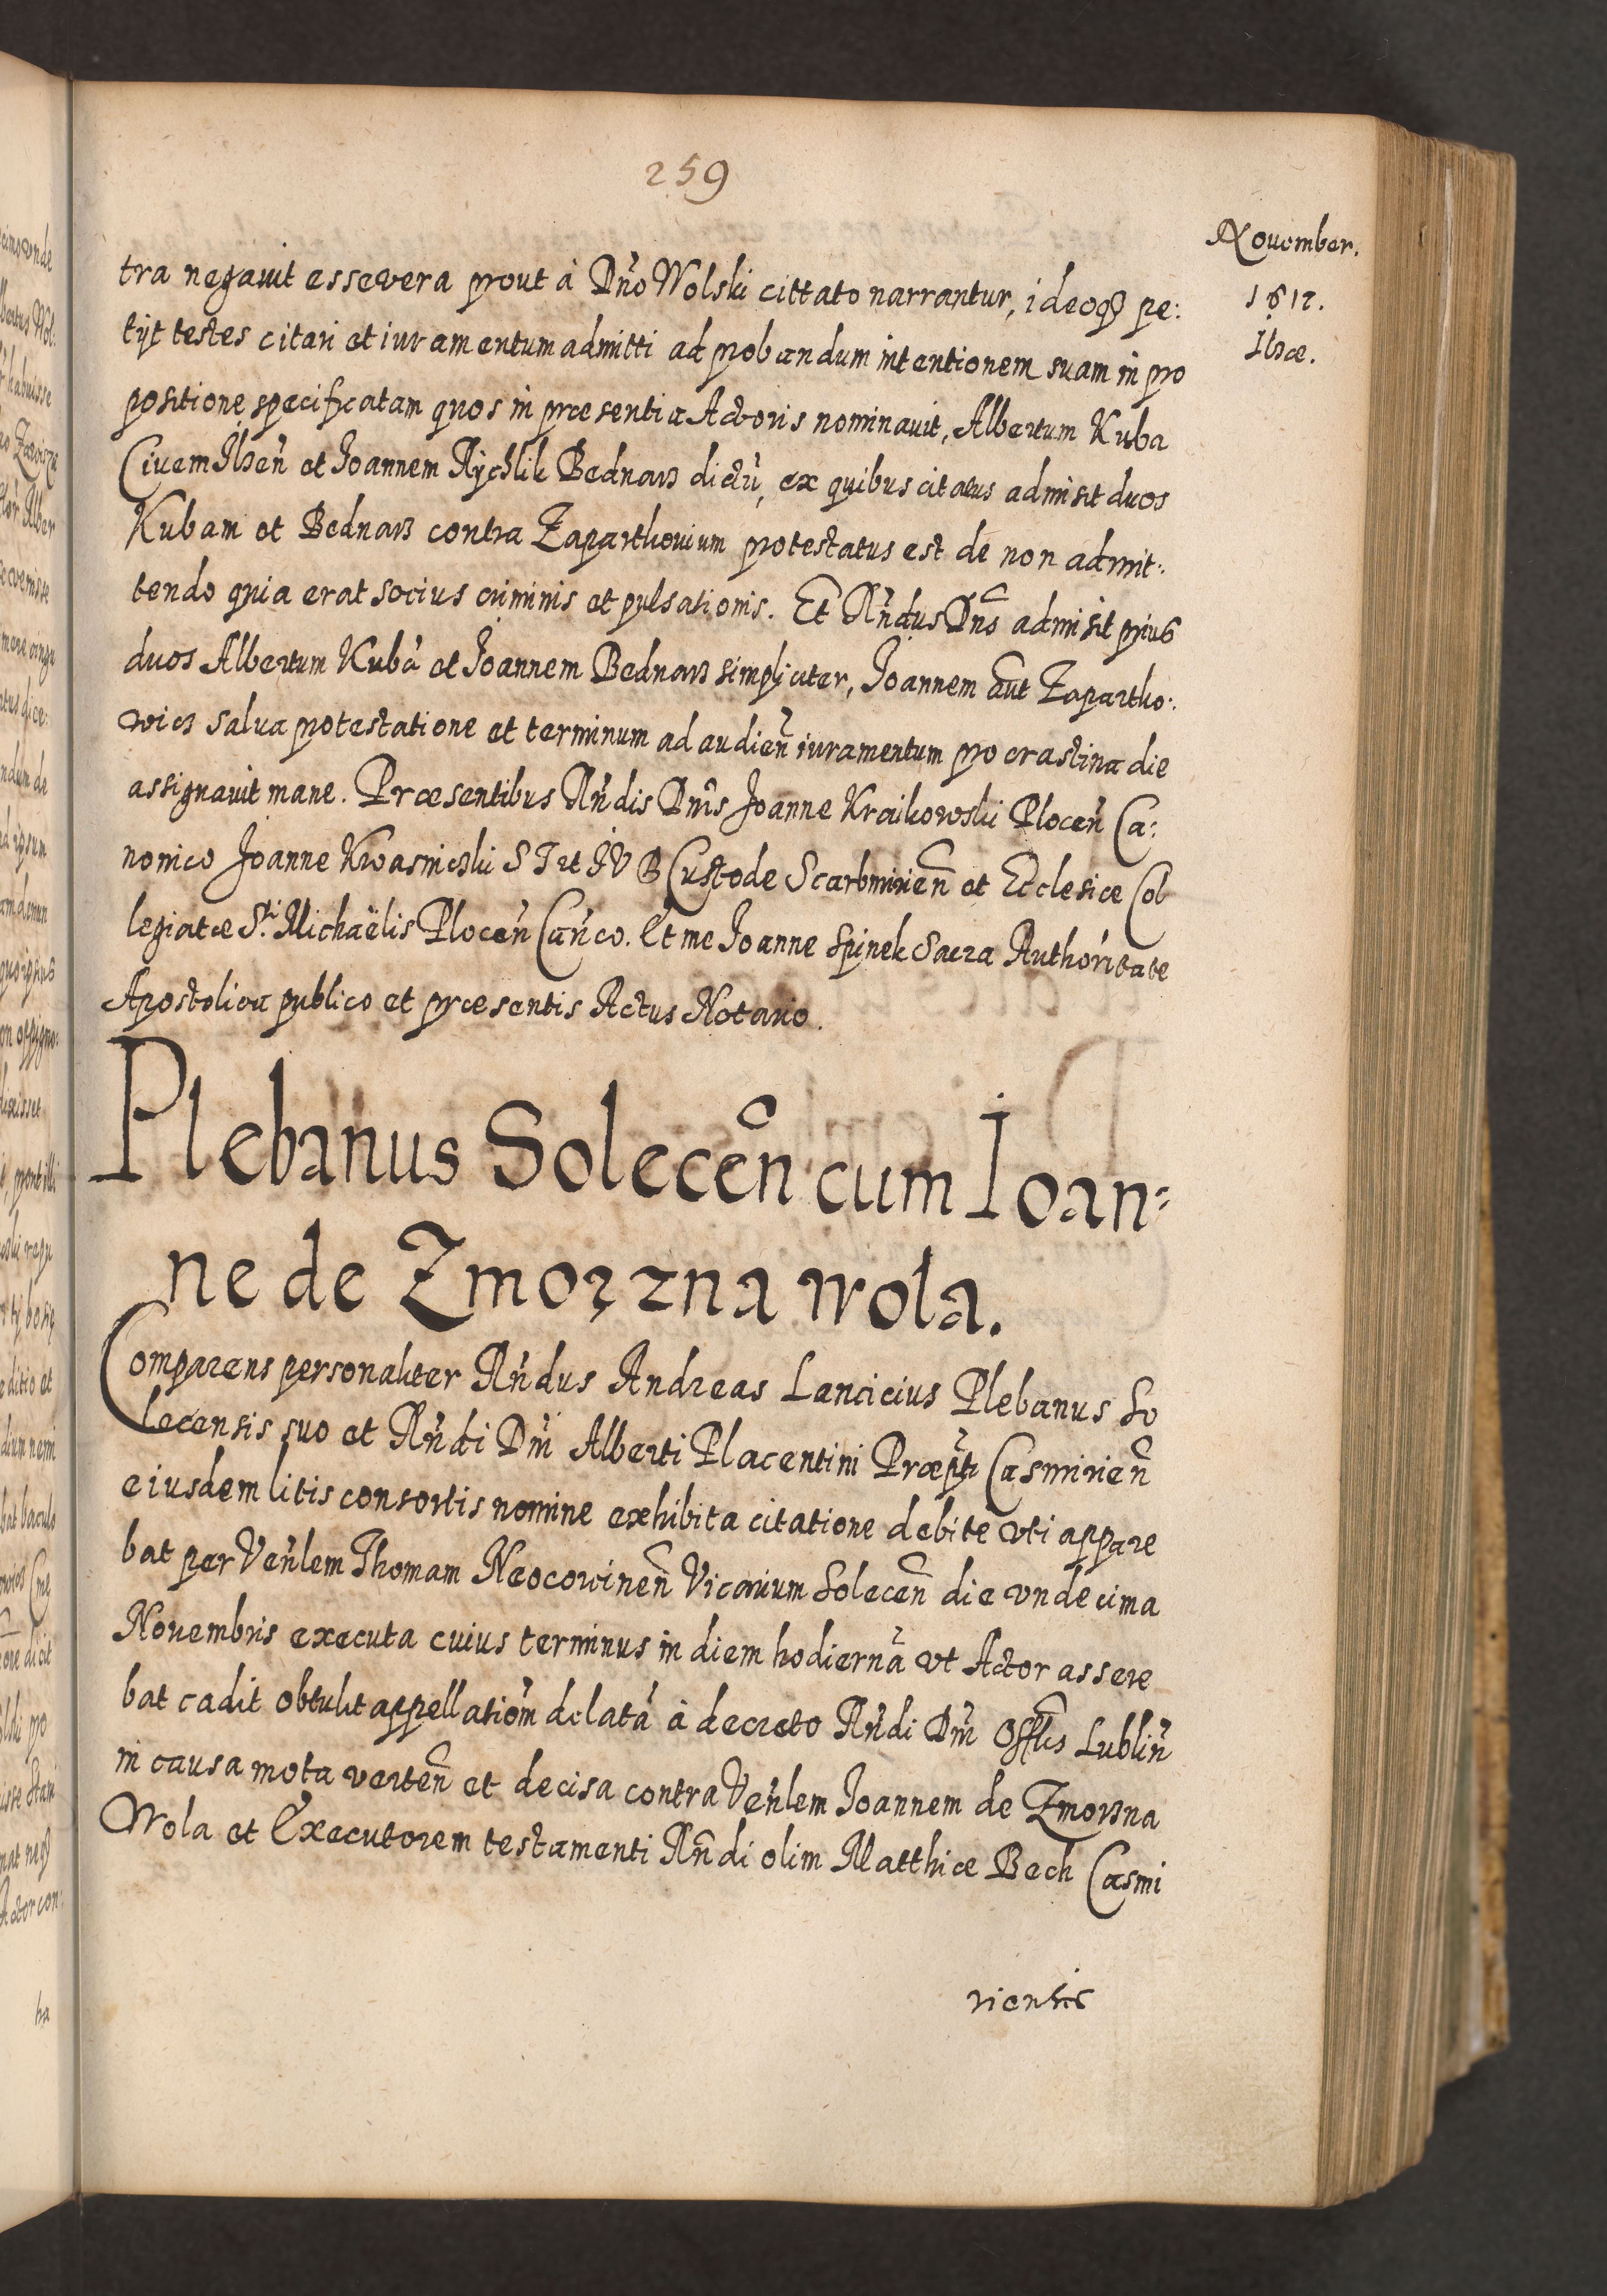 259
November.
1612.
Ilzæ.
tra negauit esse vera prout à Dn̄o Wolski cittato narrantur, ideoqȝ pe:
tÿt testes citari et iuramentum admitti ad probandum intentionem suam in pro
positione specificatam quos in præsentia Actoris nominauit, Albertum Kuba
Ciuem Ilzen̄ et Joannem Rychlik Bednarz dictū, ex quibus citatus admisit duos
Kubam et Bednarz contra Zaparthouium protestatus est de non admit:
tendo quia erat socius criminis et pulsationis. Et Rn̄dus Dn̄s admisit prius
duos Albertum Kubā et Joannem Bednarz simpliciter, Joannem aūt Zapartho:
wicz salua protestatione et terminum ad audien̄ iuramentum pro crastina die
assignauit mane. Præsentibus Rn̄dis Dn̄is Joanne Kraikowski Plocen̄ Ca:
nonico Joanne Kwasniczki S T et I V B Custode Scarbmirien̄ et Ecclesiæ Col
legiatæ Sti Michaëlis Plocen̄ Can̄co. Et me Joanne Spinek Sacra Authoritate
Apostolica publico et præsentis Actus Notario.
Plebanus Solecen̄ cum Ioan=
ne de Zmorzna wola.
Comparens personaliter Rn̄dus Andreas Lancicius Plebanus So
lecensis suo et Rn̄di Dn̄i Alberti Placentini Præpti Casmirien̄
eiusdem litis consortis nomine exhibita citatione debite vti appare
bat per Ven̄lem Thomam Neocorcinen̄ Vicarium Solecen̄ die vndecima
Nouembris executa cuius terminus in diem hodiernā vt Actor assere
bat cadit obtulit appellatiom̄ delatā à decreto Rn̄di Dn̄i Offlis Lublin̄
in causa mota verten̄ et decisa contra Ven̄lem Joannem de Zmorzna
Wola et Executorem testamenti Rn̄di olim Matthiæ Bech Casmi
riensis